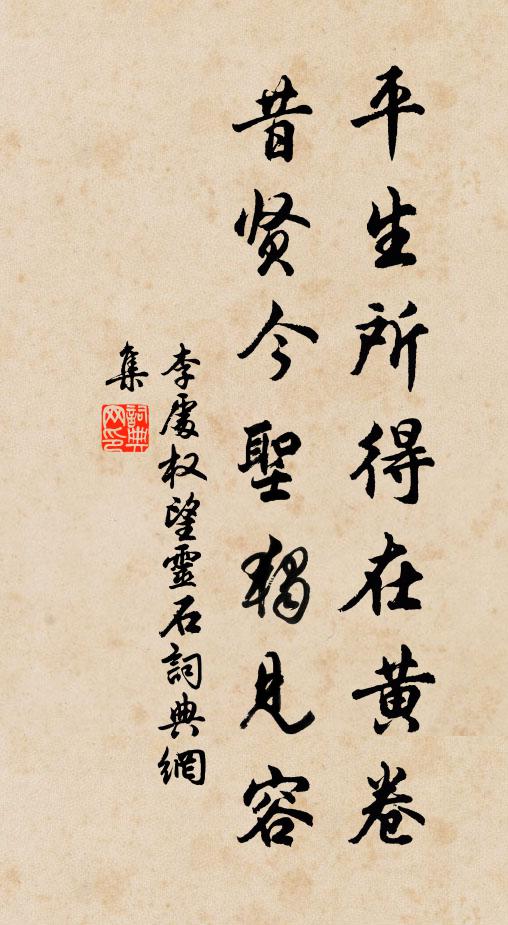 平生所得在黄卷
昔贤今聖獨見容
李處权望靈石詞典網
集
詞典
网印